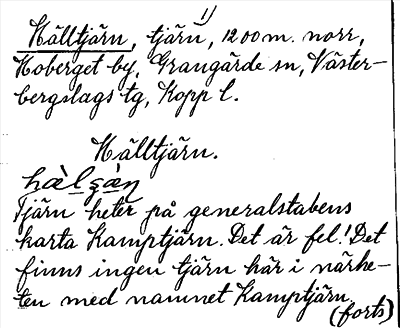 1)
Hälltjärn, tjärn, 1200m. norr,
Hoberget by, Grangärde sn, Väster-
bergslags tg, Kopp l.
Hälltjärn.
hälsän
Tjärn heter på generalstabens
karta Kamptjärn. Det är fel! Det
finns ingen tjärn här i närhe-
ten med namnet Kamptjärn.
(forts)